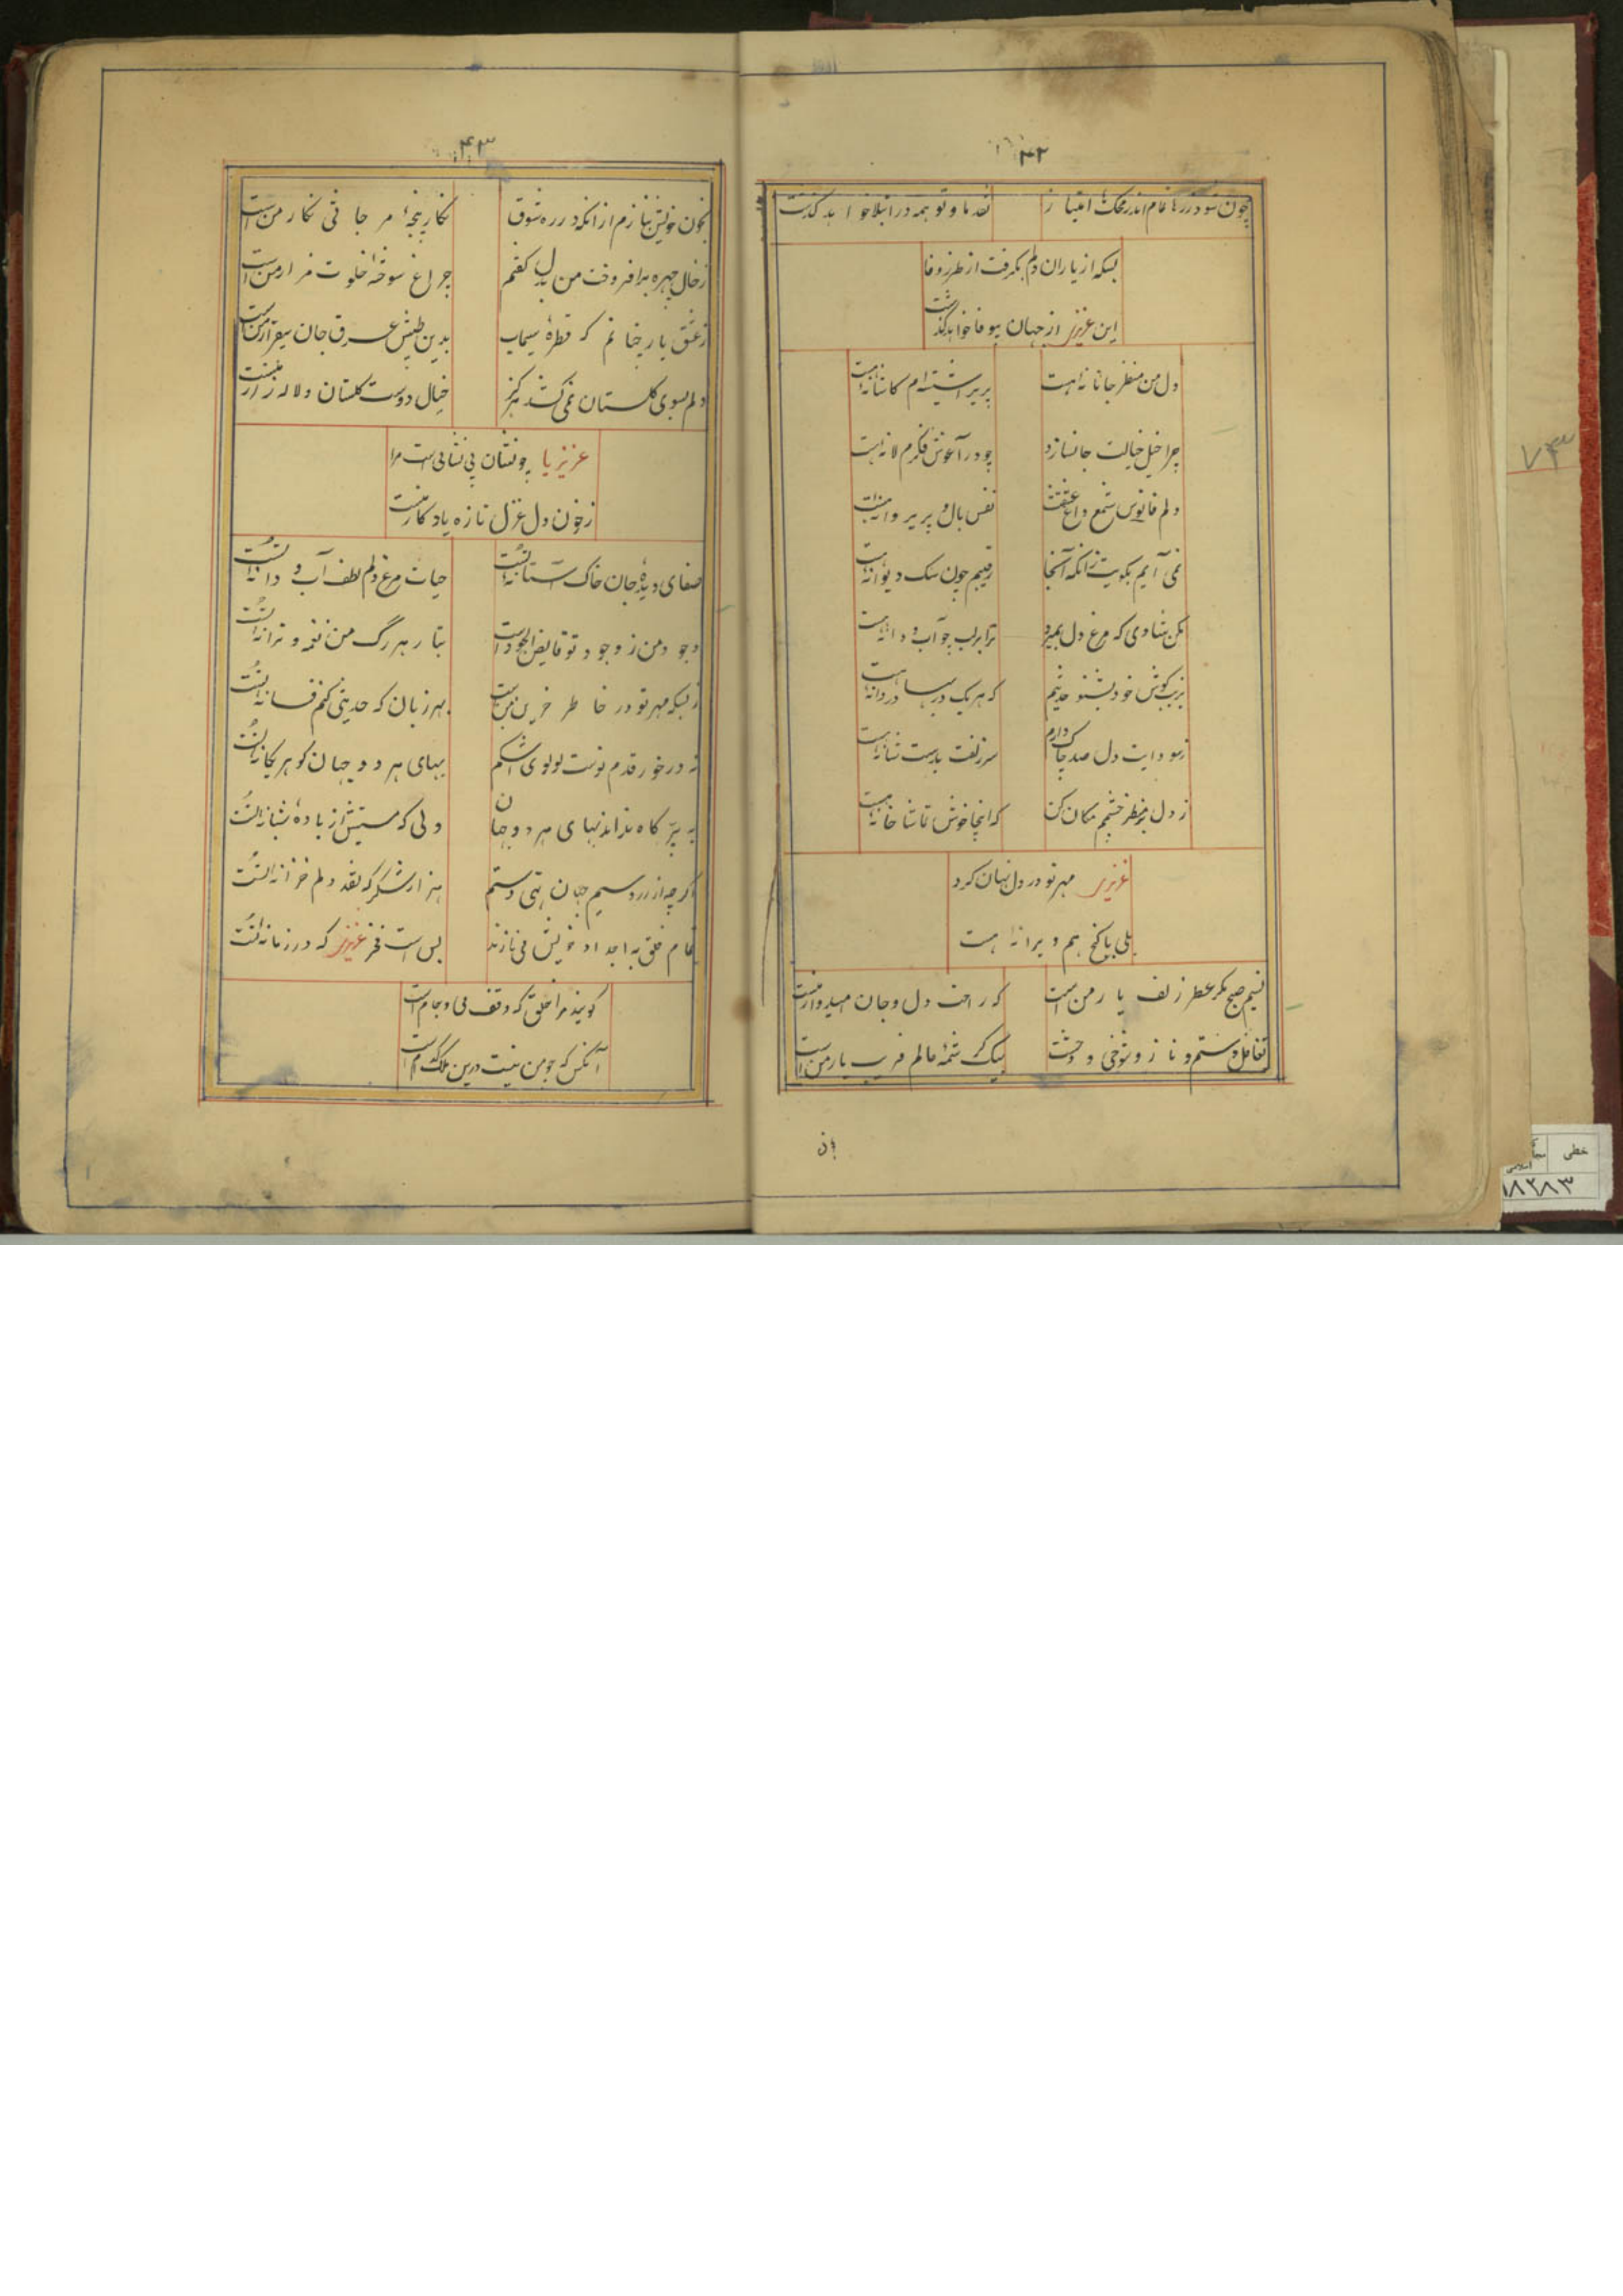 ۴۲
چون شود زرها تمام اندر محک امتیاز
نقد ما و تو همه در ابتلا خواهد گذشت
بسکه از یاران دلم بگرفت از طرز وفا
این عزیز از جهان بیوفا خواهد گذشت
دل من منظر جانانه است
پریرا شیشه‌ام کاشانه است
چرا خیل خیالت جا نسازد
چو در آغوش فکرم لانه است
دلم فانوس شمع داغ عشقت
نفس بال و پر پروانه است
نمی آیم بکویت زانکه آنجا
رقیبم چون سگ دیوانه است
مکن شادی که مرغ دل بمیرد
ترا بر لب چو آب و دانه است
بزیب گوش خود بشنو حدیثم
که هر یک در بها دردانه است
ز سودایت دل صد چاک دارم
سر زلفت بدست شانه است
ز دل بر منظر چشمم مکان کن
که اینجا خوش تماشا خانه است
عزیز مهر تو در دل نهان کرد
بلی با گنج هم ویرانه است
نسیم صبح مگر عطر زلف یار منست
که راحت دل و جان امیدوار منست
تغافل و ستم و ناز و شوخی و وحشت
بیک کرشمه عالم فریب یار من است
۴۳
بخون خویش بنازم از آنکه در ره شوق
نگار پنجه مرجانی نگار من است
ز خال چهره برافروخت من بدل گفتم
چراغ سوخته خلوت مزار من است
ز عشق یار چنانم که قطره سیماب
بدین طپش عرق جان بیقرار منست
دلم بسوی گلستان نمی‌کشد هرگز
خیال دوست گلستان و لاله زار منست
عزیز با چو نشان بی نشانی است مرا
ز خون دل غزل تازه یادگار منست
صفای دیده جان خاک آستانه تست
حیات مرغ دلم لطف آب و دانه تست
وجود من ز وجود تو فایض الجود است
بتار هر رگ من نغمه و ترانه تست
ز بسکه مهر تو در خاطر حزین منست
بهر زبان که حدیثی کنم فسانه تست
نه در خور قدم توست لولوی اشکم
بهای هر دو جهان گوهر یگانه تست
به پر کاه نداند بهای هر دو جهان
دلی که مستیش از باده شبانه تست
اگر چه از زر و سیم جهان تهی دستم
هزار شکر که نقد دلم خزانه تست
تمام خلق به اجداد خویش می‌نازند
بس است فخر عزیز که در زمانه تست
گویند مرا خلق که وقف می و جام است
آنکس که چو من نیست درین ملک کدام است
خطی
۱۸۲۸۳
۷۳